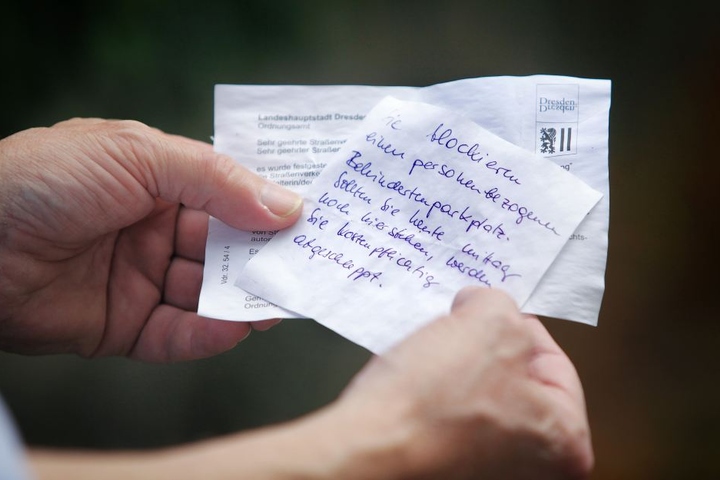 Landeshauptstadt Dresden
Ordnungsamt
Sehr geehrte Straßenve
Sehr geehrter Straßen
es wurde festgeste
Dresden.
Dresden.
Vdr. 32.54/4
ie blockieren
einen personenbezogenen
Behindertenparkplatz.
Sollten Sie heute mittag
noch hier stehen, werden
Sie kostenpflichtig
abgeschleppt.